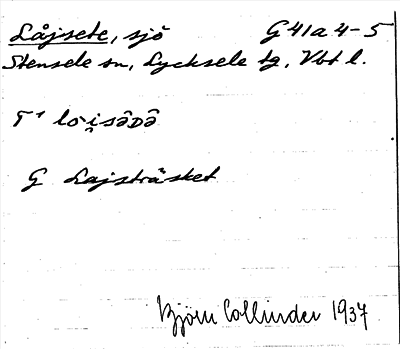 Låjsete, sjö G 41 a 4-5
Stensele sn, Lycksele tg, Vbt l.
T¹ lo·i̯səᴅə
G Lajsträsket
Björn Collinder 1937